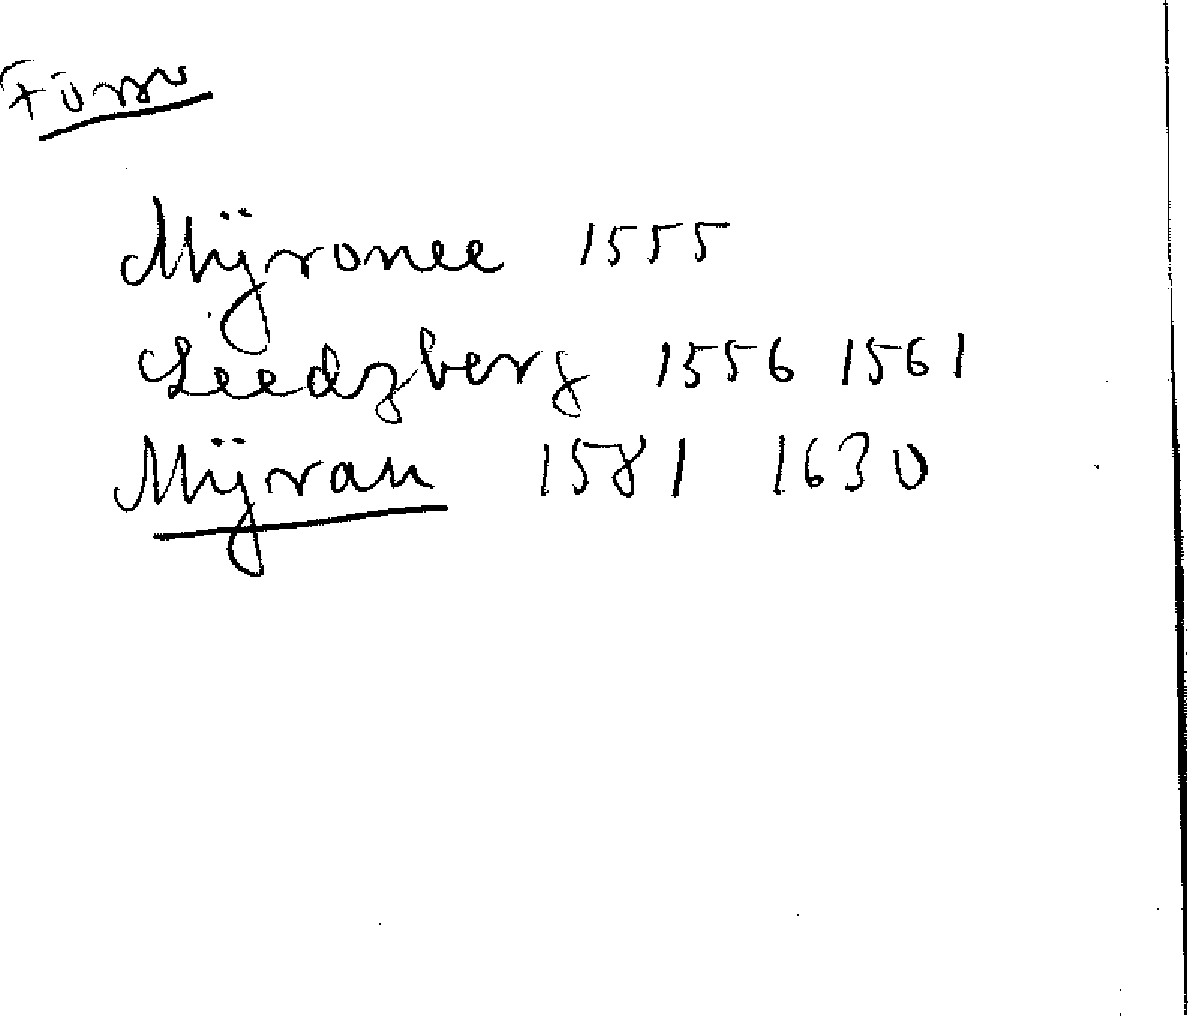 Mÿronee 1555
Leedzberg 1556 1561
Mÿran 1581 1630